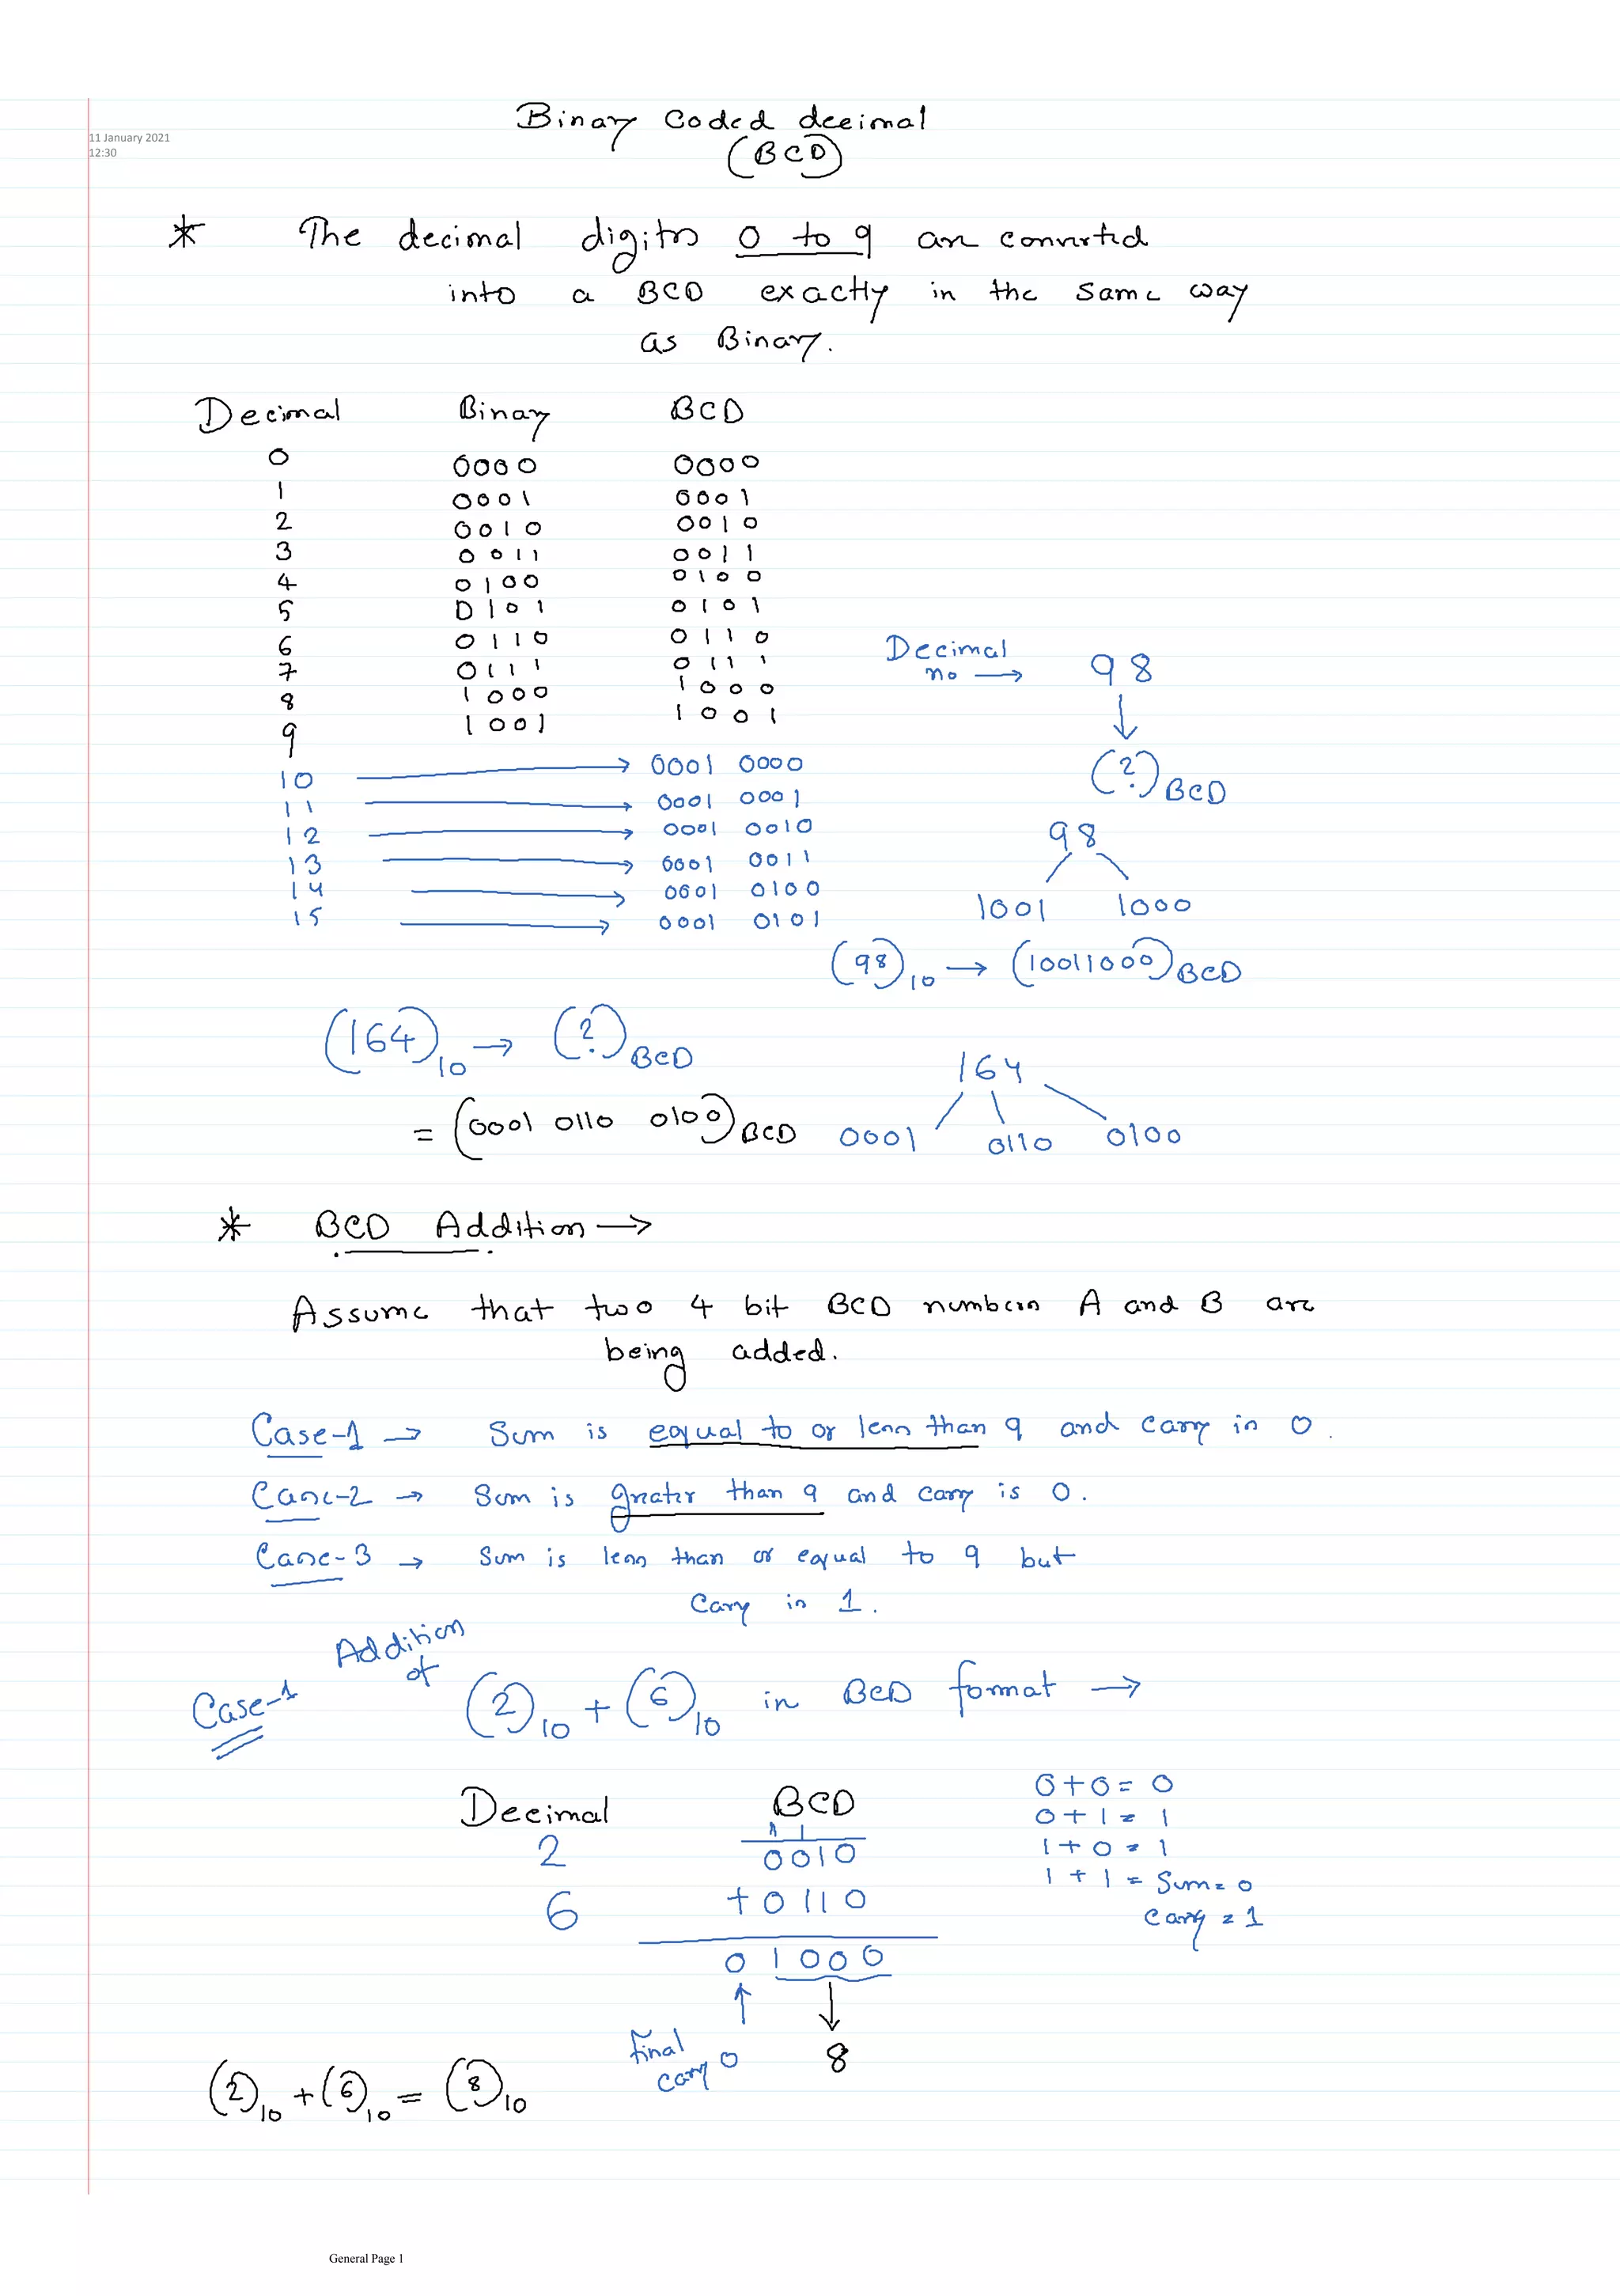 11 January 2021
12:30
Binary Coded decimal
(BCD)
* The decimal digits 0 to 9 are converted
into a BCD exactly in the same way
as Binary.
Decimal Binary BCD
0 0000 0000
1 0001 0001
2 0010 0010
3 0011 0011
4 0100 0100
5 0101 0101
6 0110 0110
7 0111 0111
8 1000 1000
9 1001 1001
10 → 0001 0000
11 → 0001 0001
12 → 0001 0010
13 → 0001 0011
14 → 0001 0100
15 → 0001 0101
Decimal
no → 98
↓
(?)BCD
98
1001 1000
(98)10 → (10011000)BCD
(164)10 → (?)BCD
= (0001 0110 0100)BCD
164
0001 0110 0100
* BCD Addition →
Assume that two 4 bit BCD numbers A and B are
being added.
Case-1 → Sum is equal to or less than 9 and carry is 0.
Case-2 → Sum is greater than 9 and carry is 0.
Case-3 → Sum is less than or equal to 9 but
carry is 1.
Case-1
Addition
of
(2)10 + (6)10 in BCD format →
Decimal BCD
1 1
2 0010
6 + 0110
0 1000
↑ ↓
Final
carry 0
8
0+0= 0
0+1= 1
1+0= 1
1+1= Sum= 0
Carry = 1
(2)10 + (6)10 = (8)10
General Page 1